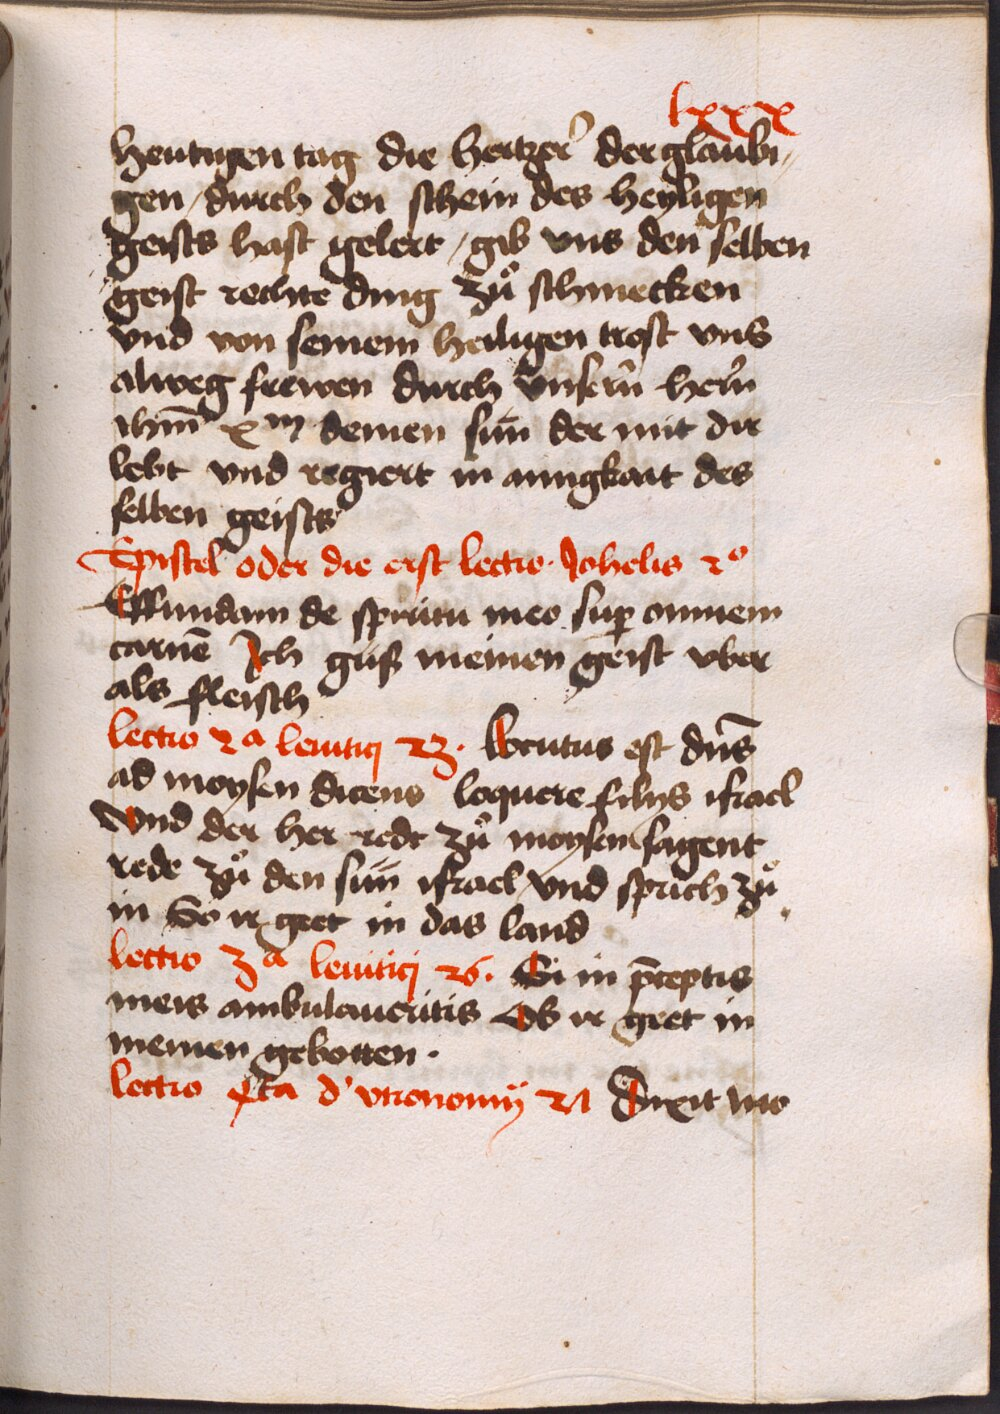 lxxx
heutigen tag die hertzeꝛ̉ der glaubi⸗
gen / durch den schein des heyligen
geists hast gelert / gib vns den selben
geist rechte ding zů schmecken
vnd von seinem heiligen trost vns
alweg frewen durch vnsern̄ hern̄
ihm̄ xm deinen sun̄ der mit dir
lebt vnd regiert in ainigkait des
selben geists
Epistel oder die erst lectio · Johelis 2o
Effundam de spiritu meo sup̱ omnem
carnē Ich güß meinen geist vber
als fleisch
lectio 2a leuitici 23 · Locutus est dn̄s
ad moysen dicens loquere filijs israel
Vnd der her redt zů moysen sagent
rede zů den sün̄ israel / vnd sprich zů
in So ir geet in das land
lectio 3a leuitici 26 · Si in p̄ceptis
meis ambulaueritis Ob ir geet in
meinen gebotten ·
lectio 4ta d' vtronomij 21 Dixit mo